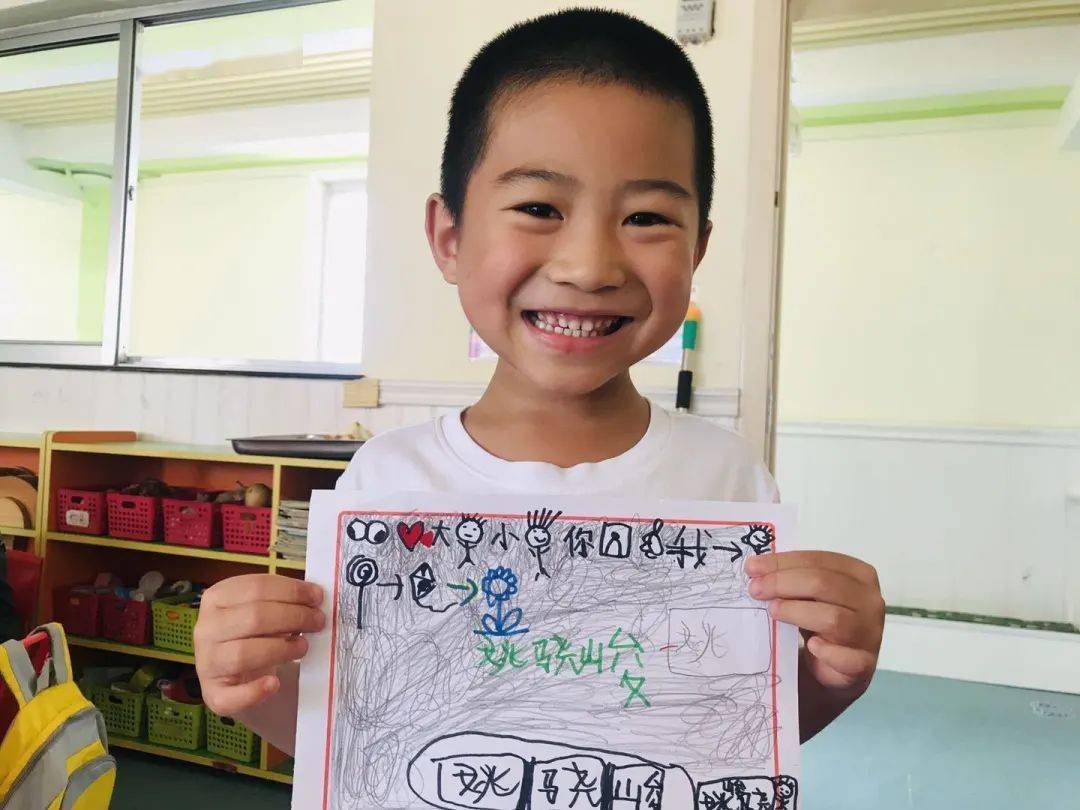 大 小 你 我
姚骁山 姚
姚骁山
姚骁